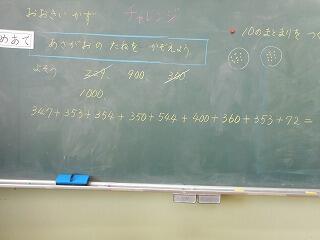 おおきい かず
チャレンジ
めあて
あさがお の たねを かぞえよう
• 10のまとまりを つ
よそう
900
300
1000
347+353+354+350+544+400+360+353+72=